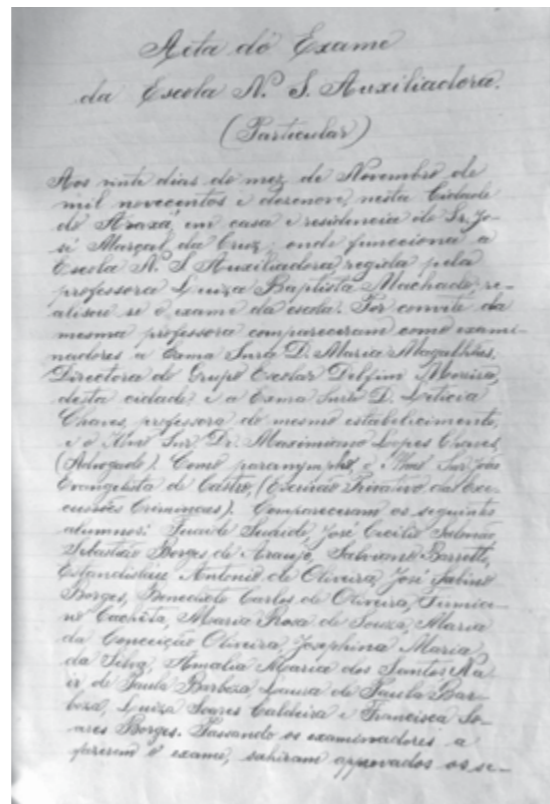 Acta do Exame
da Escola N. S. Auxiliadora.
(Particular)
Aos vinte dias do mez de Novembro de
mil novecentos e desenove, nesta Cidade
de Araxá, em casa e residencia do Sr. Jo-
sé Marçal da Cruz, onde funcciona a
Escola N. S. Auxiliadora, regida pela
professora Luiza Baptista Machado, re-
alisou se o exame da escola. Por convite da
mesma professora compareceram como exami-
nadores a Exma Snra D. Maria Magalhães,
Directora do Grupo Escolar Delfim Moreira,
desta cidade, e a Exma Snra D. Leticia
Chaves, professora do mesmo estabelecimento,
e o Snr Dr. Maximiano Lopes Chaves
(Advogado). Como paranympho, o Snr João
Evangelista de Castro, (Escrivão Privativo das Exe-
cussões Criminaes). Compareceram os seguintes
alumnos: José Cecilio Salomão,
Sebastião Borges de Araujo, Salviano Barretto,
Estanislau Antonio de Oliveira, José Sabino
Borges, Benedicto Carlos de Oliveira, Firmice-
no Cachêta, Maria Rosa de Souza, Maria
da Conceição Oliveira, Josephina Maria
da Silva, Amalia Maria dos Santos, Na-
ir de Paula Barboza, Laura de Paula Bar-
boza, Luiza Soares Caldeira e Francisca So-
ares Borges. Passando os examinadores a
fazerem o exame, sahiram approvados os se-